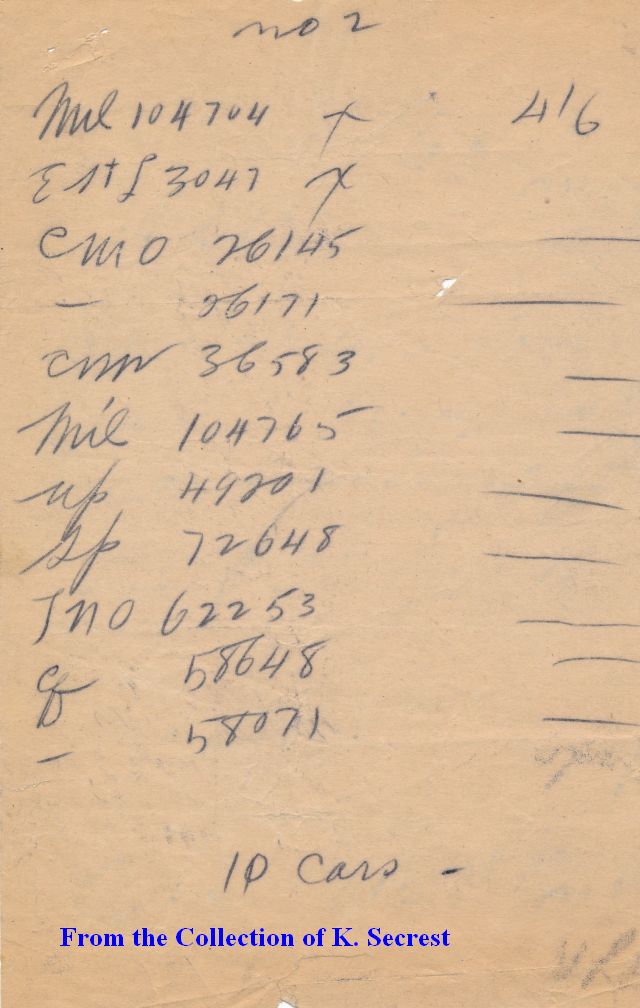 no 2
Mil 104704 x 4'6
E St L 3047 x
CMO 26145 —
— 26171 —
cnw 36583 —
Mil 104765 —
up 49201 —
Sp 72648 —
TNO 62253 —
58648 —
— 58071 —
10 Cars -
From the Collection of K. Secrest